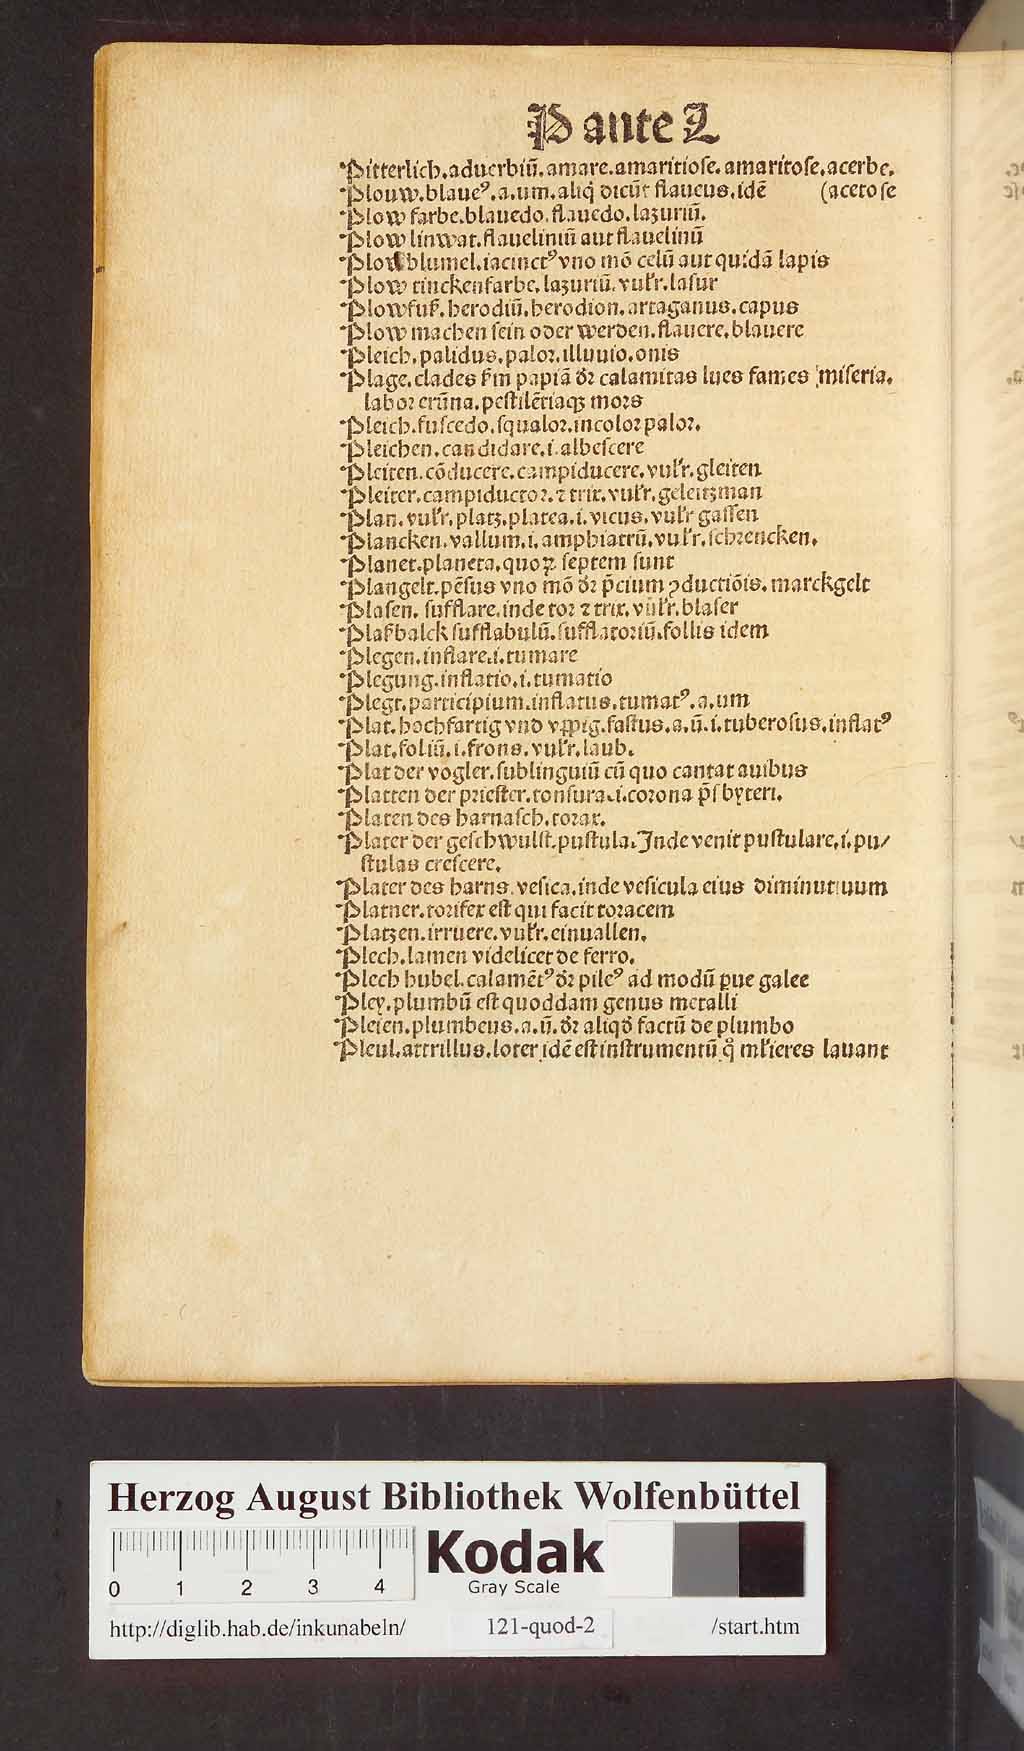 P ante L
Pitterlich. aduerbiū. amare. amaritiose. amaritose. acerbe.
Plouw. blaueꝰ. a. um. aliq̄ dicūt flaueus. idē (acetose
Plow farbe. blauedo. flauedo. lazuriū.
Plow linwat. flaueliniū aut flauelinū
Plow blumel. iacinctꝰ vno mō celū aut quidā lapis
Plow tinckenfarbe. lazuriū. vulr. lasur
Plowfuß. herodiū. herodion. artaganus. capus
Plow machen sein oder werden. flauere. blauere
Pleich. palidus. palor. illuuio. onis
Plage. clades ẜm papiā dr̄ calamitas lues fames miseria.
labor erūna. pestilētiaqꝫ mors
Pleich. fuscedo. squalor. incolor palor.
Pleichen. candidare. i. albescere
Pleiten. cōducere. campiducere. vulr. gleiten
Pleiter. campiductor. ⁊ trix. vulr. geleitzman
Plan. vulr. platz. platea. i. vicus. vulr gassen
Plancken. vallum. i. amphiatrū. vulr. schrencken.
Planet. planeta. quoꝝ septem sunt
Plangelt. pēsus vno mō dr̄ p̄cium ꝯductiōis. marckgelt
Plasen. sufflare. inde tor ⁊ trix. vulr. blaser
Plaßbalck sufflabulū. sufflatoriū. follis idem
Plegen. inflare. i. tumare
Plegung. inflatio. i. tumatio
Plegt. participium. inflatus. tumatꝰ. a. um
Plat. hochfartig vnd vppig. fastus. a. ū. i. tuberosus. inflatꝰ
Plat. foliū. i. frons. vulr. laub.
Plat der vogler. sublinguiū cū quo cantat auibus
Platten der priester. tonsura. i. corona p̄sbyteri.
Platen des harnasch. torax.
Plater der geschwulst. pustula. Inde venit pustulare. i. pu/
stulas crescere.
Plater des harns. vesica. inde vesicula eius diminutiuum
Platner. torifex est qui facit toracem
Platzen. irruere. vulr. einuallen.
Plech. lamen videlicet de ferro.
Plech hubel. calamētꝰ dr̄ pileꝰ ad modū pue galee
Pley. plumbū est quoddam genus metalli
Pleien. plumbeus. a. ū. dr̄ aliqd̄ factū de plumbo
Pleul. attrillus. loter idē est instrumentū q̊ ml̄ieres lauant
Herzog August Bibliothek Wolfenbüttel
0 1 2 3 4
Kodak
Gray Scale
http://diglib.hab.de/inkunabeln/ 121-quod-2 /start.htm